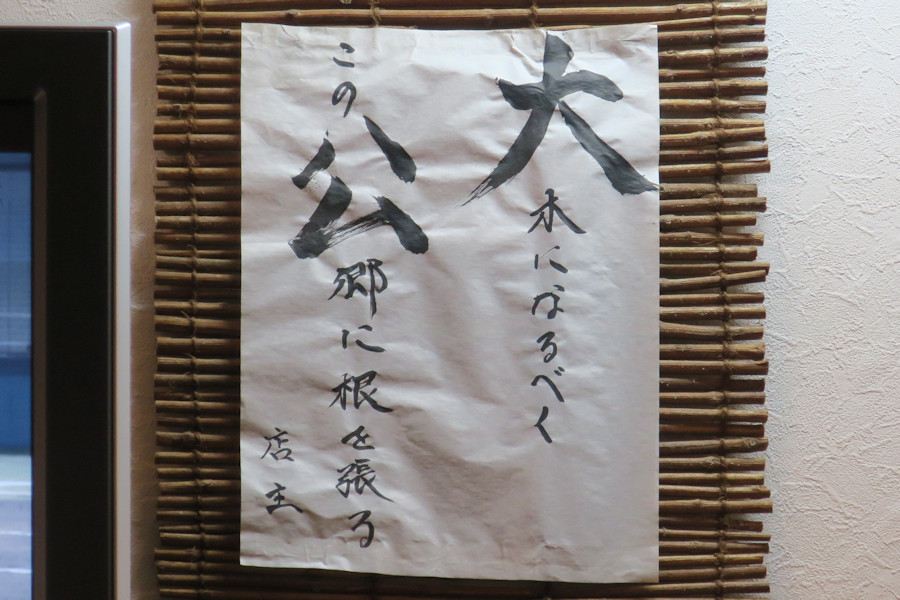 大木になるべく
この公郷に根を張る
店主